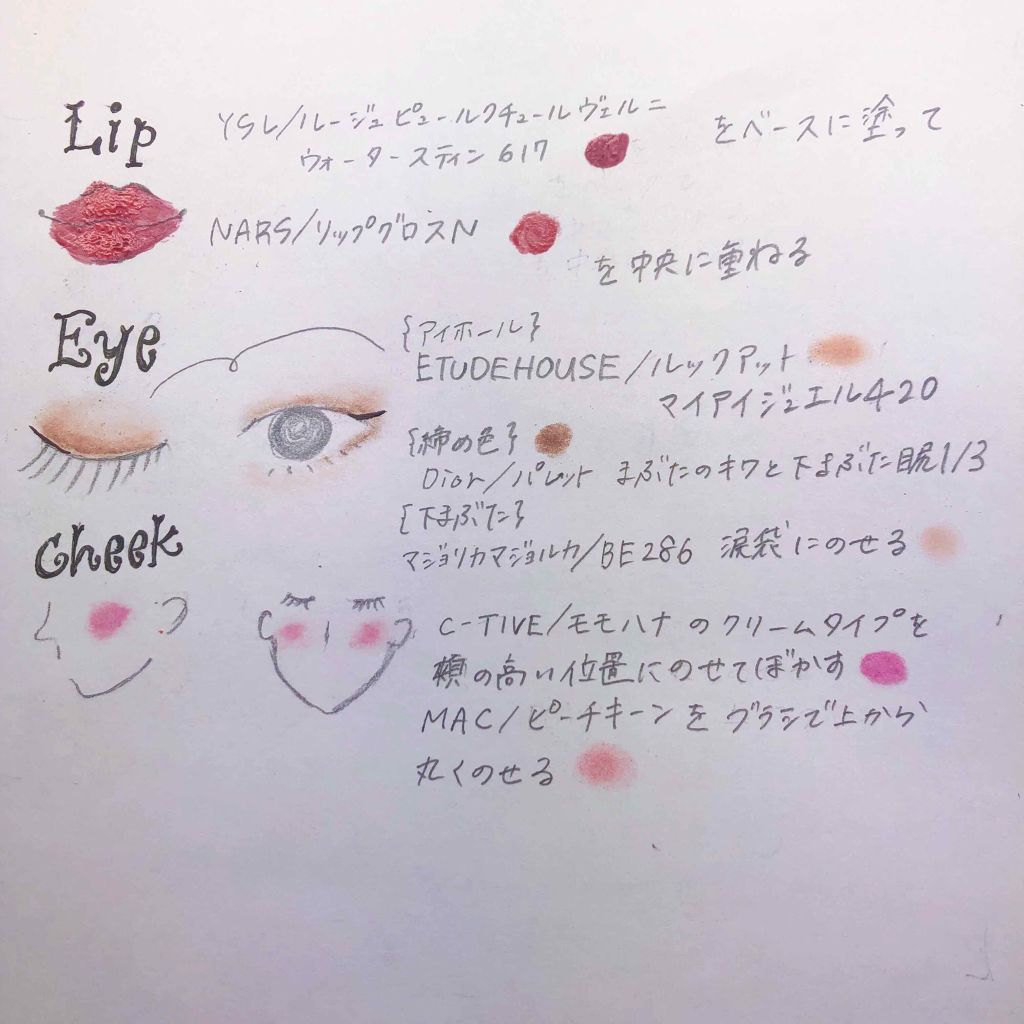 Lip
YSL/ルージュピュールクチュールヴェルニ
ウォータースティン 617
をベースに塗って
NARS/リップグロスN
を中央に重ねる
Eye
{アイホール}
ETUDEHOUSE/ルックアット
マイアイジュエル420
{締め色}
Dior/パレット まぶたのキワと下まぶた目尻1/3
[下まぶた}
マジョリカマジョルカ/BE286 涙袋にのせる
Cheek
C-TIVE/モモハナのクリームタイプを
頬の高い位置にのせてぼかす
MAC/ピーチキーンをブラシで上から
丸くのせる